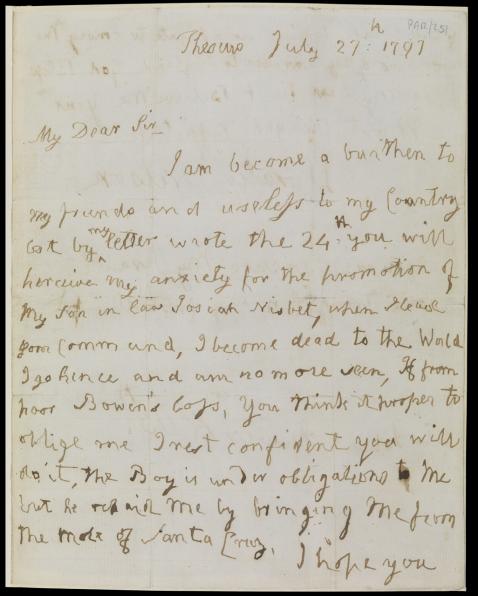 PAR/251
Theseus July 27:th 1797
My Dear Sir
I am become a burthen to
my friends and useless to my Country
but by my letter wrote the 24th you will
perceive my anxiety for the promotion of
my Son in law Josiah Nisbet, when I leave
your command, I become dead to the World
I go hence and am no more seen, If from
poor Bowen's loss, you think it proper to
oblige me I rest confident you will
do it, the Boy is under obligations to me
but he repaid me by bringing me from
the mole of Santa Cruz.
I hope you